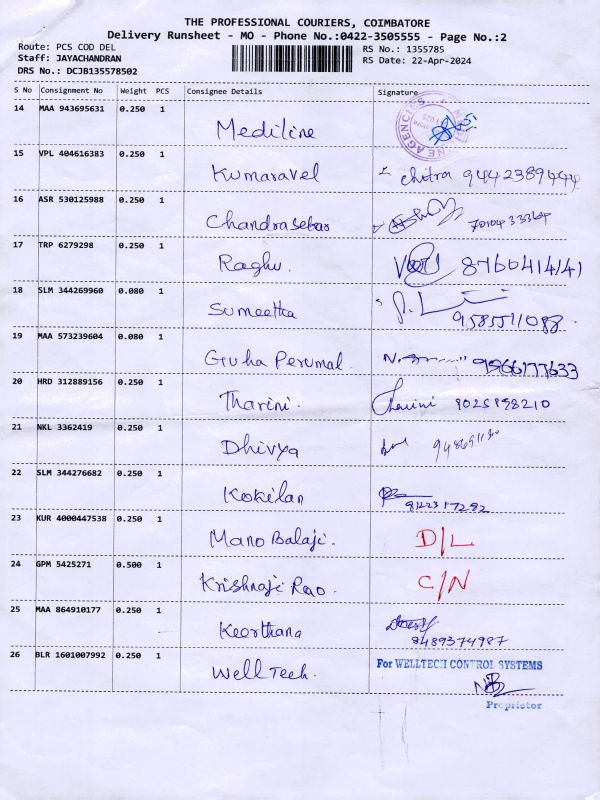 THE PROFESSIONAL COURIERS, COIMBATORE
Delivery Runsheet - MO - Phone No.:0422-3505555 - Page No.:2
Route: PCS COD DEL
RS No.: 1355785
Staff: JAYACHANDRAN
RS Date: 22-Apr-2024
DRS No.: DCJB135578502
S No Consignment No Weight PCS Consignee Details Signature
14 MAA 943695631 0.250 1
Mediline
15 VPL 404616383 0.250 1
Kumaravel chitra 9442389444
16 ASR 530125988 0.250 1
Chandrasekar
17 TRP 6279298 0.250 1
Raghu. 8760414141
18 SLM 344269960 0.080 1
Sumeetha
19 MAA 573239604 0.080 1
Guha Perumal.
20 HRD 312889156 0.250 1
Tharini.
21 NKL 3362419 0.250 1
Dhivya
22 SLM 344276682 0.250 1
Kokilan
23 KUR 4000447538 0.250 1
Mano Balaji. D/L
24 GPM 5425271 0.500 1
Krishnaji Rao. C/N
25 MAA 864910177 0.250 1
Keerthana
8489374987
26 BLR 1601007992 0.250 1
Well Tech.
For WELLTECH CONTROL SYSTEMS
Proprietor